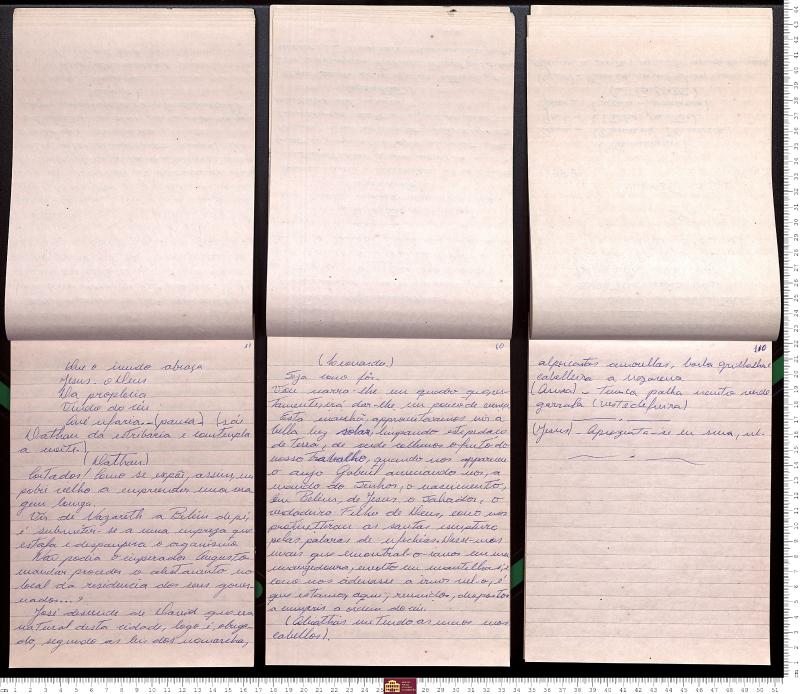 11
Que o mundo abraça
Jesus, o Deus
Da prophecia
Vindo do céu
Ave maria - (pausa) (sáe
Dathan da estribaria e contempla
a noite.)
(Dathan)
Coitados! Como se expõe, assim, um
pobre velho a emprender uma via
gem longa.
Vir de Nazareth a Belém de pé,
é submeter-se a uma empreza que
estafa e o organismo.
Não podia o imperador Augusto
mandar proceder o alistamento no
local da residencia dos seus gover
nados...?
José descende de David que era
natural desta cidade, logo é obriga
do, segundo as leis dos
60
(Leonardo)
Seja como fôr.
Vou narra-lhe um quadro que, cer
tamente, irá dar-lhe um pouco de crença
Esta manhã apparentavamos vêr a
bella luz solar, lavrando este pedaço
de terra, de onde colhemos o fructo do
nosso trabalho, quando nos appareceu
o anjo Gabriel annunciando nós, a
mando do Senhor, o nascimento,
em Belém, de Jesus o Salvador, o
verdadeiro Filho de Deus, como nos
prometteram as santas
pelas palavras de Disse-nos
mais que encontral-o-iamos em uma
mangedoura, envolto em mantilhas, e
como nos a irmos vel-o, é
que estamos, aqui, reunidos, dispostos
a cumprir a ordem do céu.
mettendo as mãos nos
cabellos).
100
alpercatas amarellas, barba grisalha e
cabelleira a nazarena
(Anna) - Tunica palha manto verde
garrafa (veste de freira)
(Jesus) - Apresenta-se em